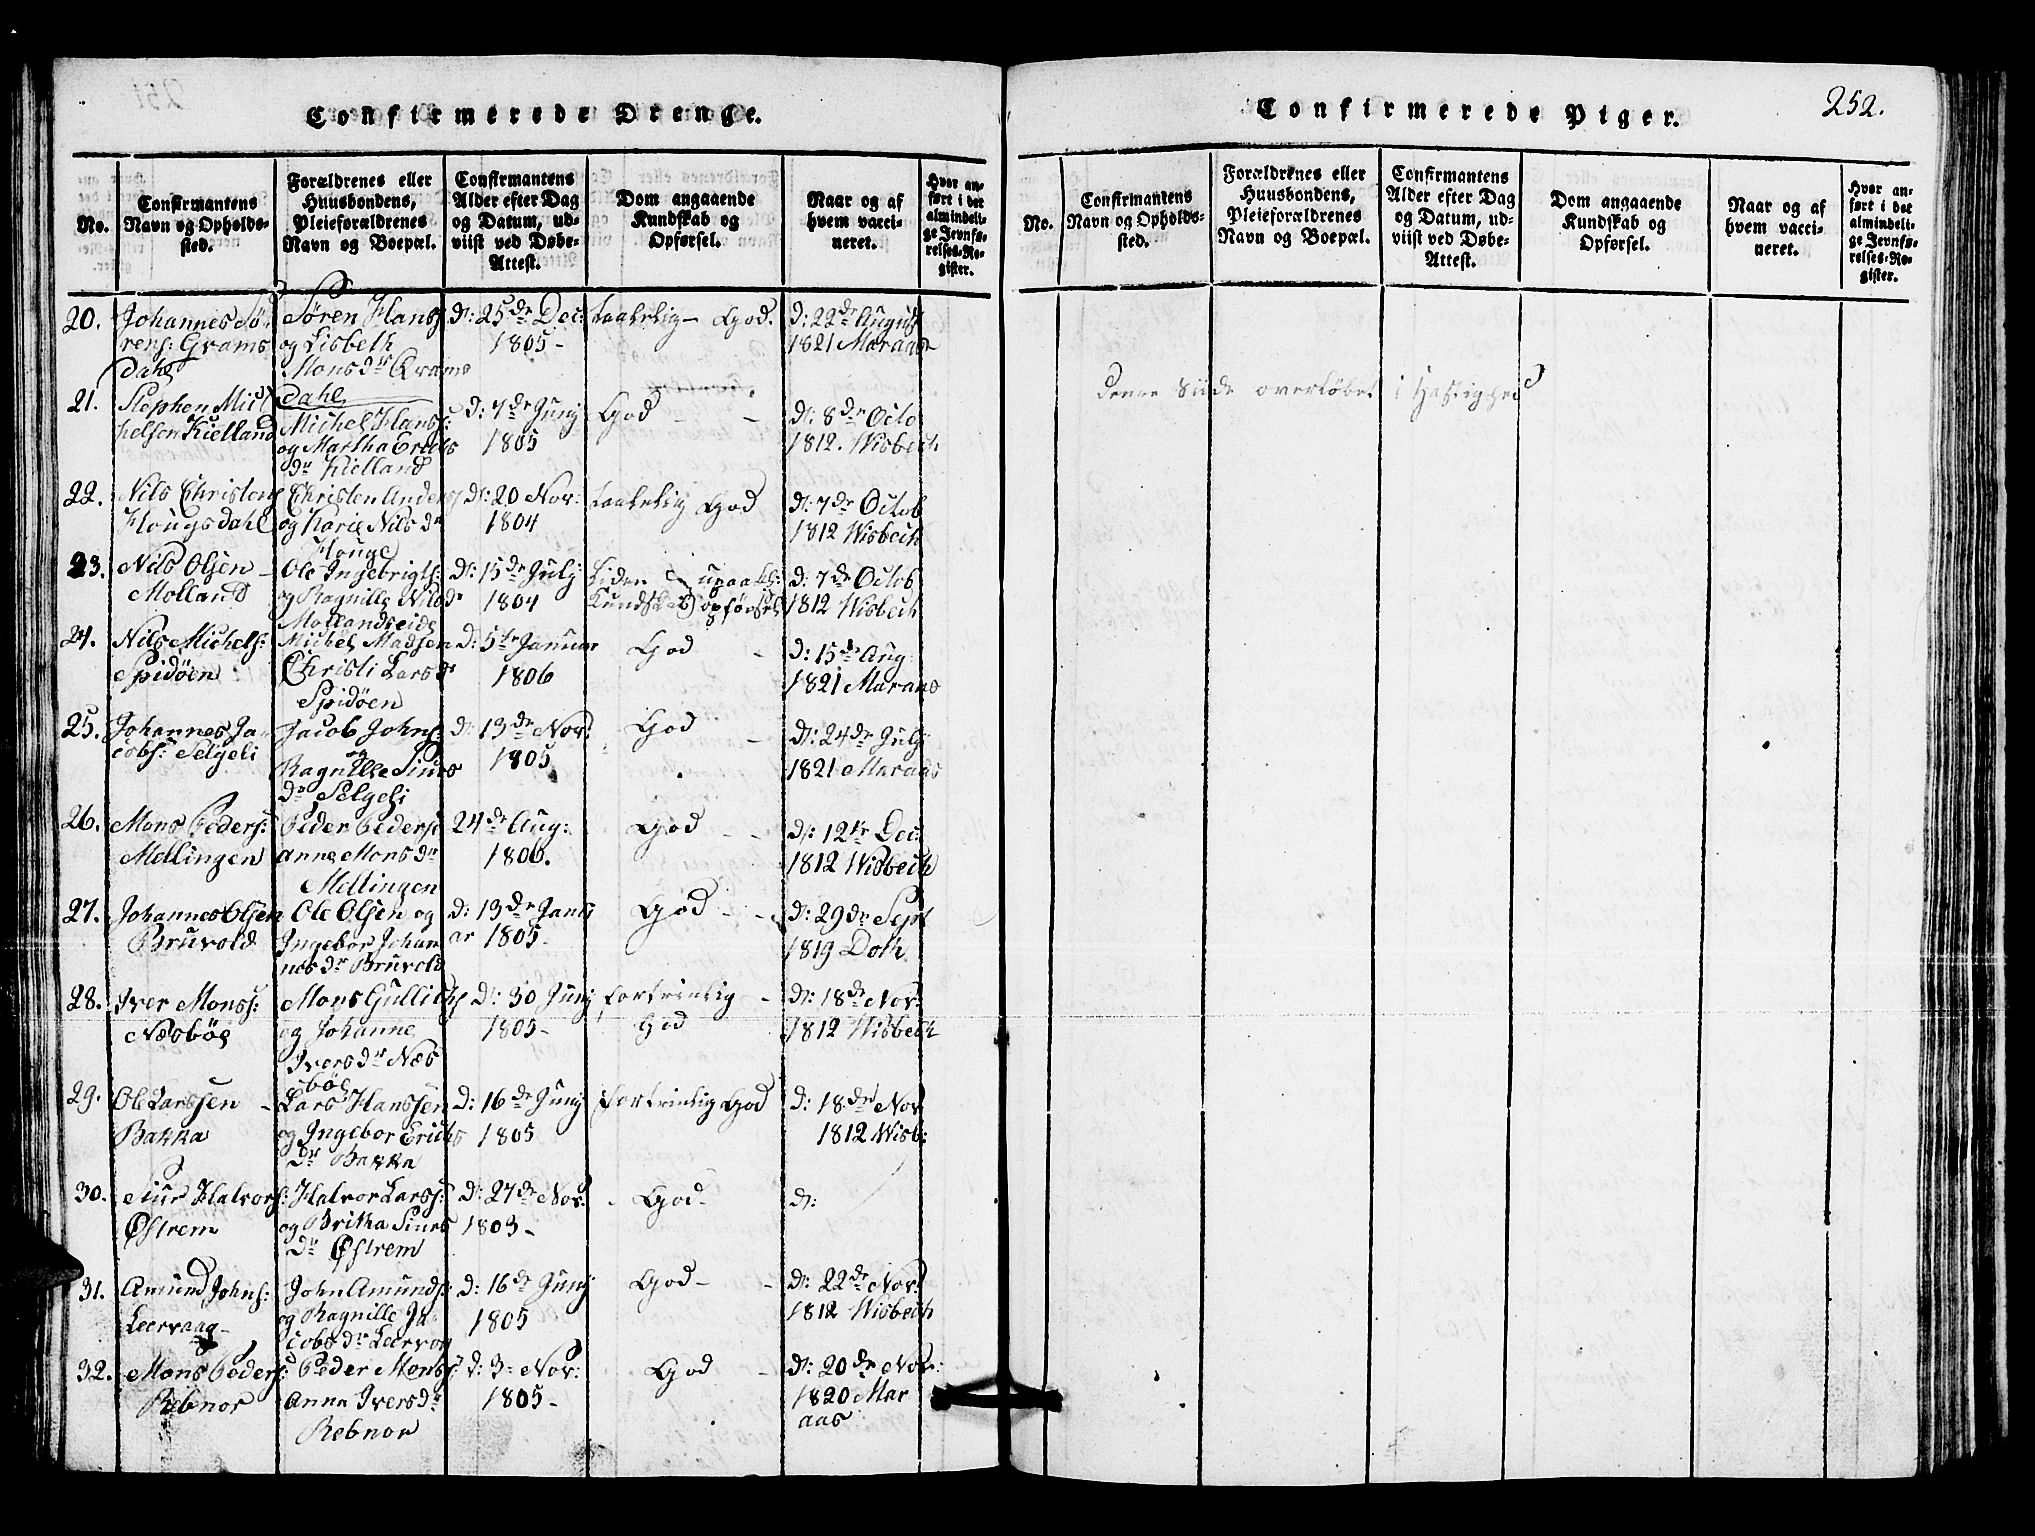 Confirmerede Drenge.
No.
Confirmantens
Navn og Opholds-
sted.
Forældrenes eller
Huusbondens,
Pleieforældrenes
Navn og Boepæl.
Confirmantens
Alder efter Dag
og Datum, ud-
viist ved Døbe-
Attest.
Dom angaaende
Kundskab og
Opførsel.
Naar og af
hvem vacci-
neret.
Hvor an-
ført i det
almindeli-
ge Jevnfø-
relses-Re-
gister.
20.
Johannes Sø-
rens: Grams
Dahl
Søren Hans
og Lisbeth
Monsdr Grams
Dahl
d: 25de Dec:
1805-
taalelig - God.
d: 22de August
1821 Maraas
21.
Stephen Mic
helsen Kielland
Michel Hans:
og Martha Erichs
dr Kielland
d: 7de Junij
1805
God - -
d: 8de Octo
1812. Wisbech
22.
Nils Christens
Hougsdahl
Christen Anders
og Karie Nilsdr
Houge
d: 20 Nov:
1804
taalelig God
d: 7de Octob
1812 Wisbech
23.
Nils Olsen -
Molland
Ole Ingebrigts:
og Ragnille Nilsdr
Mollandseide
d: 15de Julij
1804
Liden
Kundskab opførsel
d: 7de Octob
1812 Wisbech
24.
Nils Michels:
Spidöen
Michel Madsen
Christi Larsdr
Spidöen
d: 5te Januar
1806
God -
d: 15de Aug
1821 Maraas
25.
Johannes Ja
cobs: Selgeli
Jacob Johns
og
Ragnille Siurs
dr Selgeli
d: 13de Nov:
1805
God -
d: 24de Julij
1821 Maraas
26.
Mons Peders:
Mellingen
Peder Peders
Anne Monsdr
Mellingen
24de Aug:
1806.
God - -
d: 12te Dec:
1812 Wisbech
27.
Johannes Olsen
Bruvold
Ole Olsen og
Ingebor Johan
nesdr Bruvold
d: 13de Janu
ar 1805-
God - -
d: 29de Sept
1819 Doth
28.
Iver Monss:
Næsböe
Mons Gullichs
og Johanne
Iversdr Næs
böe
d: 30 Junij
1805-
fortrinlig -
God
d: 18de Nov:
1812 Wisbech
29.
Ole Larssen -
Bakka
Lars Hanssen
og Ingebor Erichs
Dr Bakka
d: 16de Junij
1805
fortrinlig God
d: 18de Nov
1812 Wisb:
30.
Siur Halvors:
Østrem
Halvor Larss:
og Britha Siurs
Dr Østrem
d: 27de Nov:
1803-
God-
d:
31.
Amund Johns:
Leervaag-
John Amunds:
og Ragnille Ja-
cobsdr Leervog
d: 16de Junij
1805
God- -
d: 22de Nov
1812 Wisbech
32.
Mons Peders:
Rebnor
Peder Monss
Anna Iversdr
Rebnor
d: 3- Nov:
1805-
God -
d: 20de Nov:
1820 Mar
aas
Confirmerede Piger.
252.
No.
Confirmantens
Navn og Opholds-
sted.
Forældrenes eller
Huusbondens,
Pleieforældrenes
Navn og Boepæl.
Confirmantens
Alder efter Dag
og Datum, ud-
viist ved Døbe-
Attest.
Dom angaaende
Kundskab og
Opførsel.
Naar og af
hvem vacci-
neret.
Hvor an-
ført i det
almindeli-
ge Jevnfø-
relses-Re-
gister.
Denne Siide overløbet i Hastighed